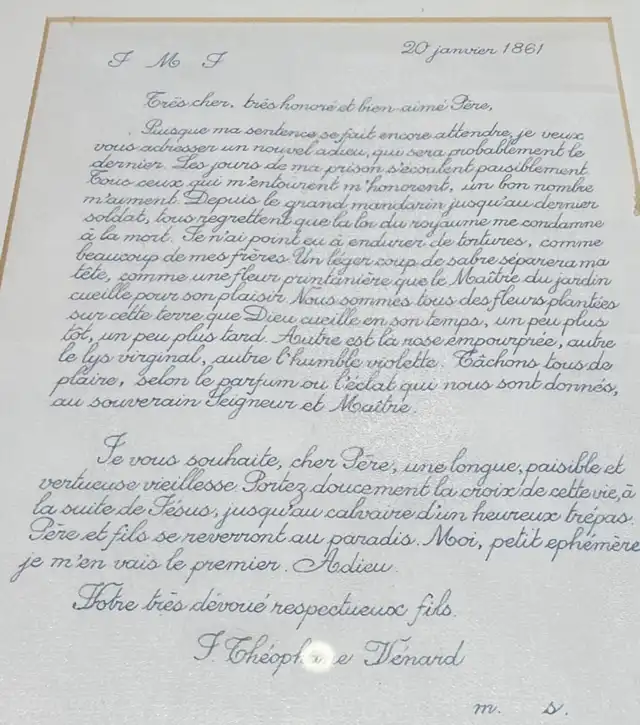 J M J
20 janvier 1861
Très cher, très honoré et bien-aimé Père,
Puisque ma sentence se fait encore attendre, je veux
vous adresser un nouvel adieu, qui sera probablement le
dernier. Les jours de ma prison s'écoulent paisiblement.
Tous ceux qui m'entourent m'honorent, un bon nombre
m'aiment. Depuis le grand mandarin jusqu'au dernier
soldat, tous regrettent que la loi du royaume me condamne
à la mort. Je n'ai point eu à endurer de tortures, comme
beaucoup de mes frères. Un léger coup de sabre séparera ma
tête, comme une fleur printanière que le Maître du jardin
cueille pour son plaisir. Nous sommes tous des fleurs plantées
sur cette terre que Dieu cueille en son temps, un peu plus
tôt, un peu plus tard. Autre est la rose empourprée, autre
le lys virginal, autre l'humble violette. Tâchons tous de
plaire, selon le parfum ou l'éclat qui nous sont donnés,
au souverain Seigneur et Maître.
Je vous souhaite, cher Père, une longue, paisible et
vertueuse vieillesse. Portez doucement la croix de cette vie, à
la suite de Jésus, jusqu'au calvaire d'un heureux trépas.
Père et fils se reverront au paradis. Moi, petit ephémère
je m'en vais le premier. Adieu.
Votre très dévoué respectueux fils.
J. Théophane Vénard
m. s.